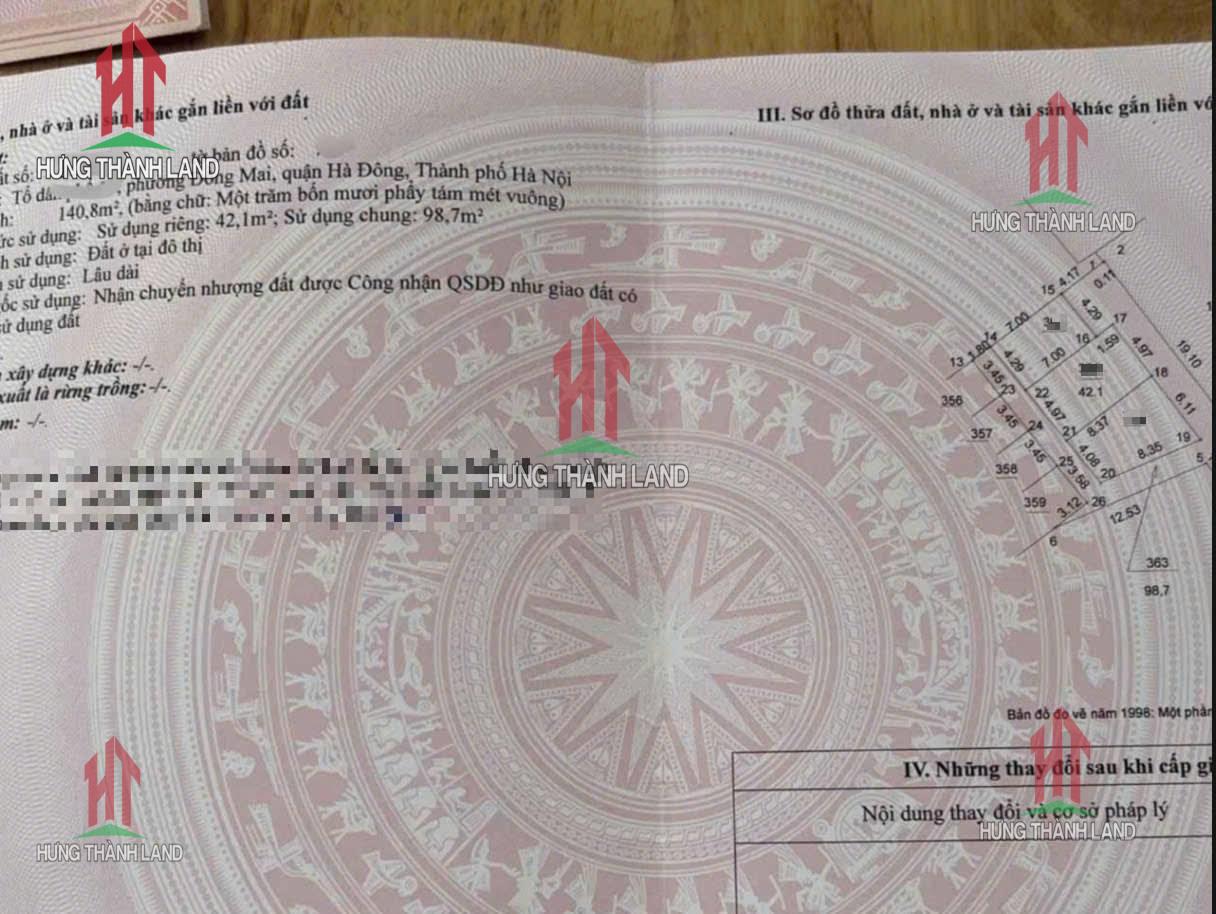 , nhà ở và tài sản khác gắn liền với đất
ất số: tờ bản đồ số:
Tổ dâ... , phường Đồng Mai, quận Hà Đông, Thành phố Hà Nội
h: 140,8m², (bằng chữ: Một trăm bốn mươi phẩy tám mét vuông)
ức sử dụng: Sử dụng riêng: 42,1m²; Sử dụng chung: 98,7m²
h sử dụng: Đất ở tại đô thị
sử dụng: Lâu dài
ốc sử dụng: Nhận chuyển nhượng đất được Công nhận QSDĐ như giao đất có
sử dụng đất
xây dựng khác: -/-.
xuất là rừng trồng: -/-.
m: -/-.
HƯNG THÀNH LAND
HƯNG THÀNH LAND
HƯNG THÀNH LAND
III. Sơ đồ thửa đất, nhà ở và tài sản khác gắn liền vớ
HƯNG THÀNH LAND
1 2
15 4.17 0.11
14 7.00 4.29 17
13 1.80 4.29 7.00 16 1.59 4.97 19.10
3.45 23 22 42.1 18
356 3.45 4.97 6.11
357 24 21 8.37
3.45 4.08 8.35 19
358 25 3.58 20 5
359 3.12 26 12.53
6
363
98,7
Bản đồ đo vẽ năm 1996: Một phần
IV. Những thay đổi sau khi cấp gi
Nội dung thay đổi và cơ sở pháp lý
HƯNG THÀNH LAND